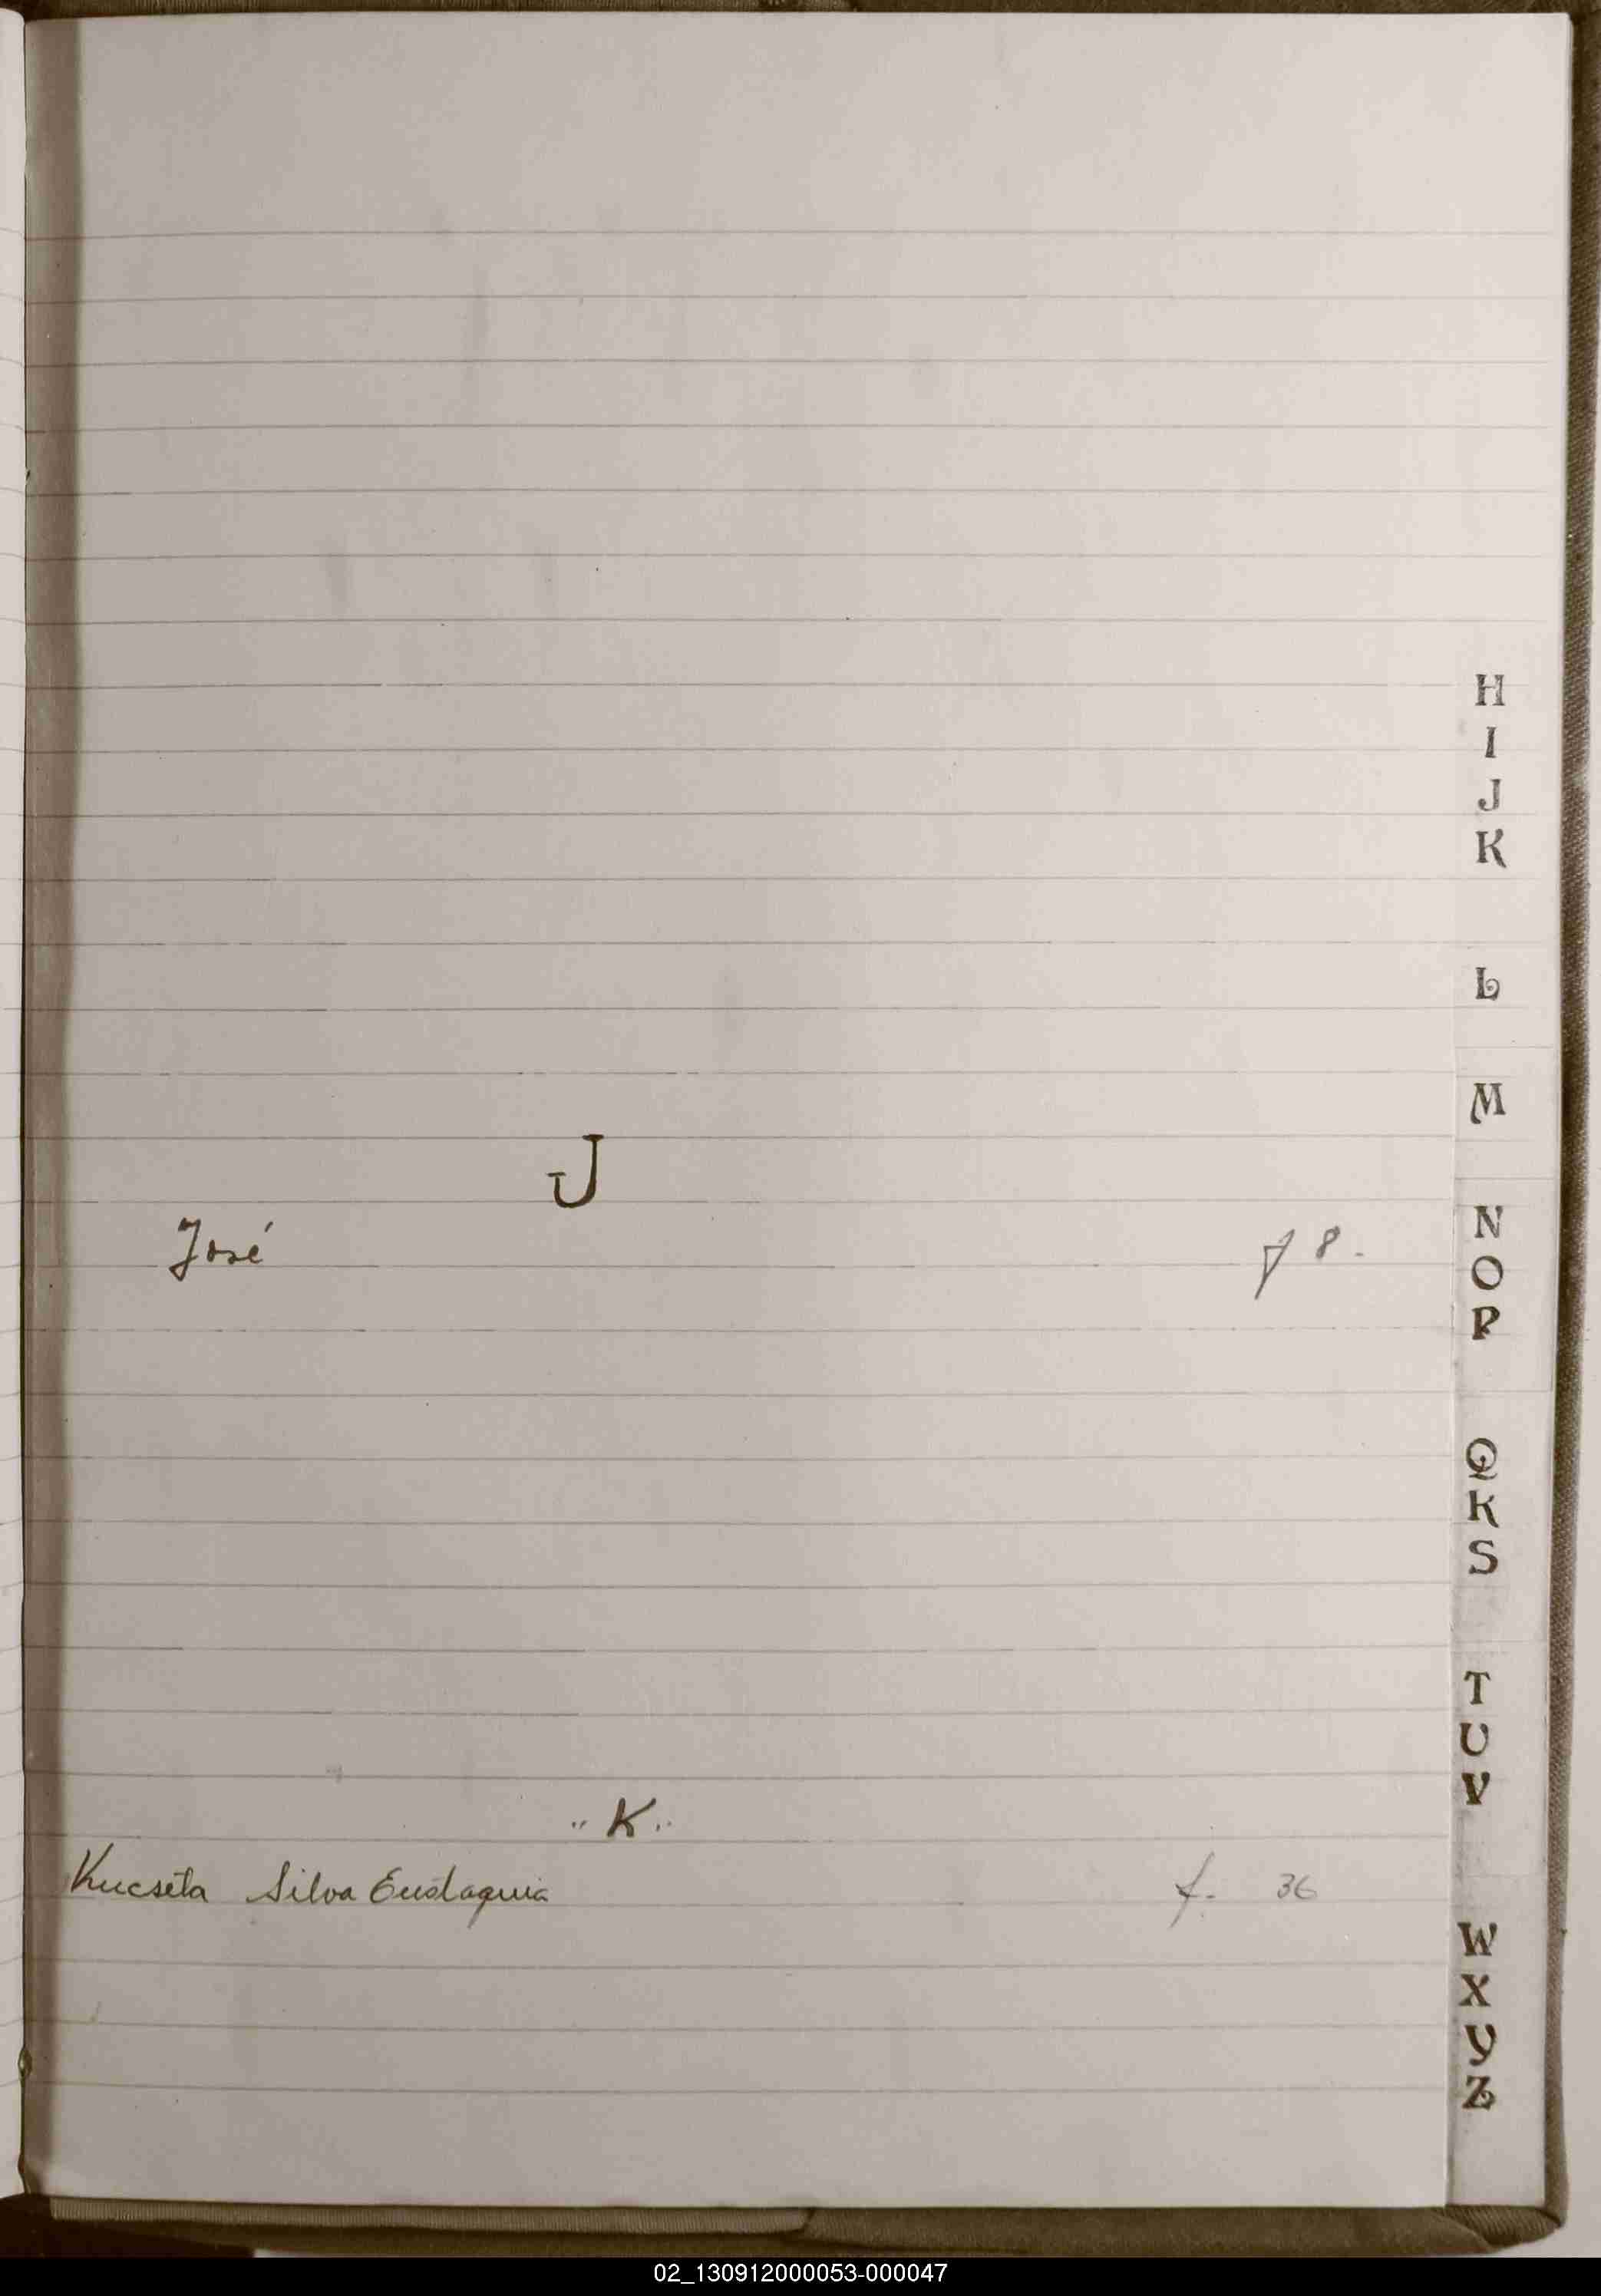 H
I
J
K
L
M
N
O
P
Q
R
S
T
U
V
W
X
Y
Z
J
José f 8.
"K"
Kucseta Silva Eustaquia f. 36
02_130912000053-000047